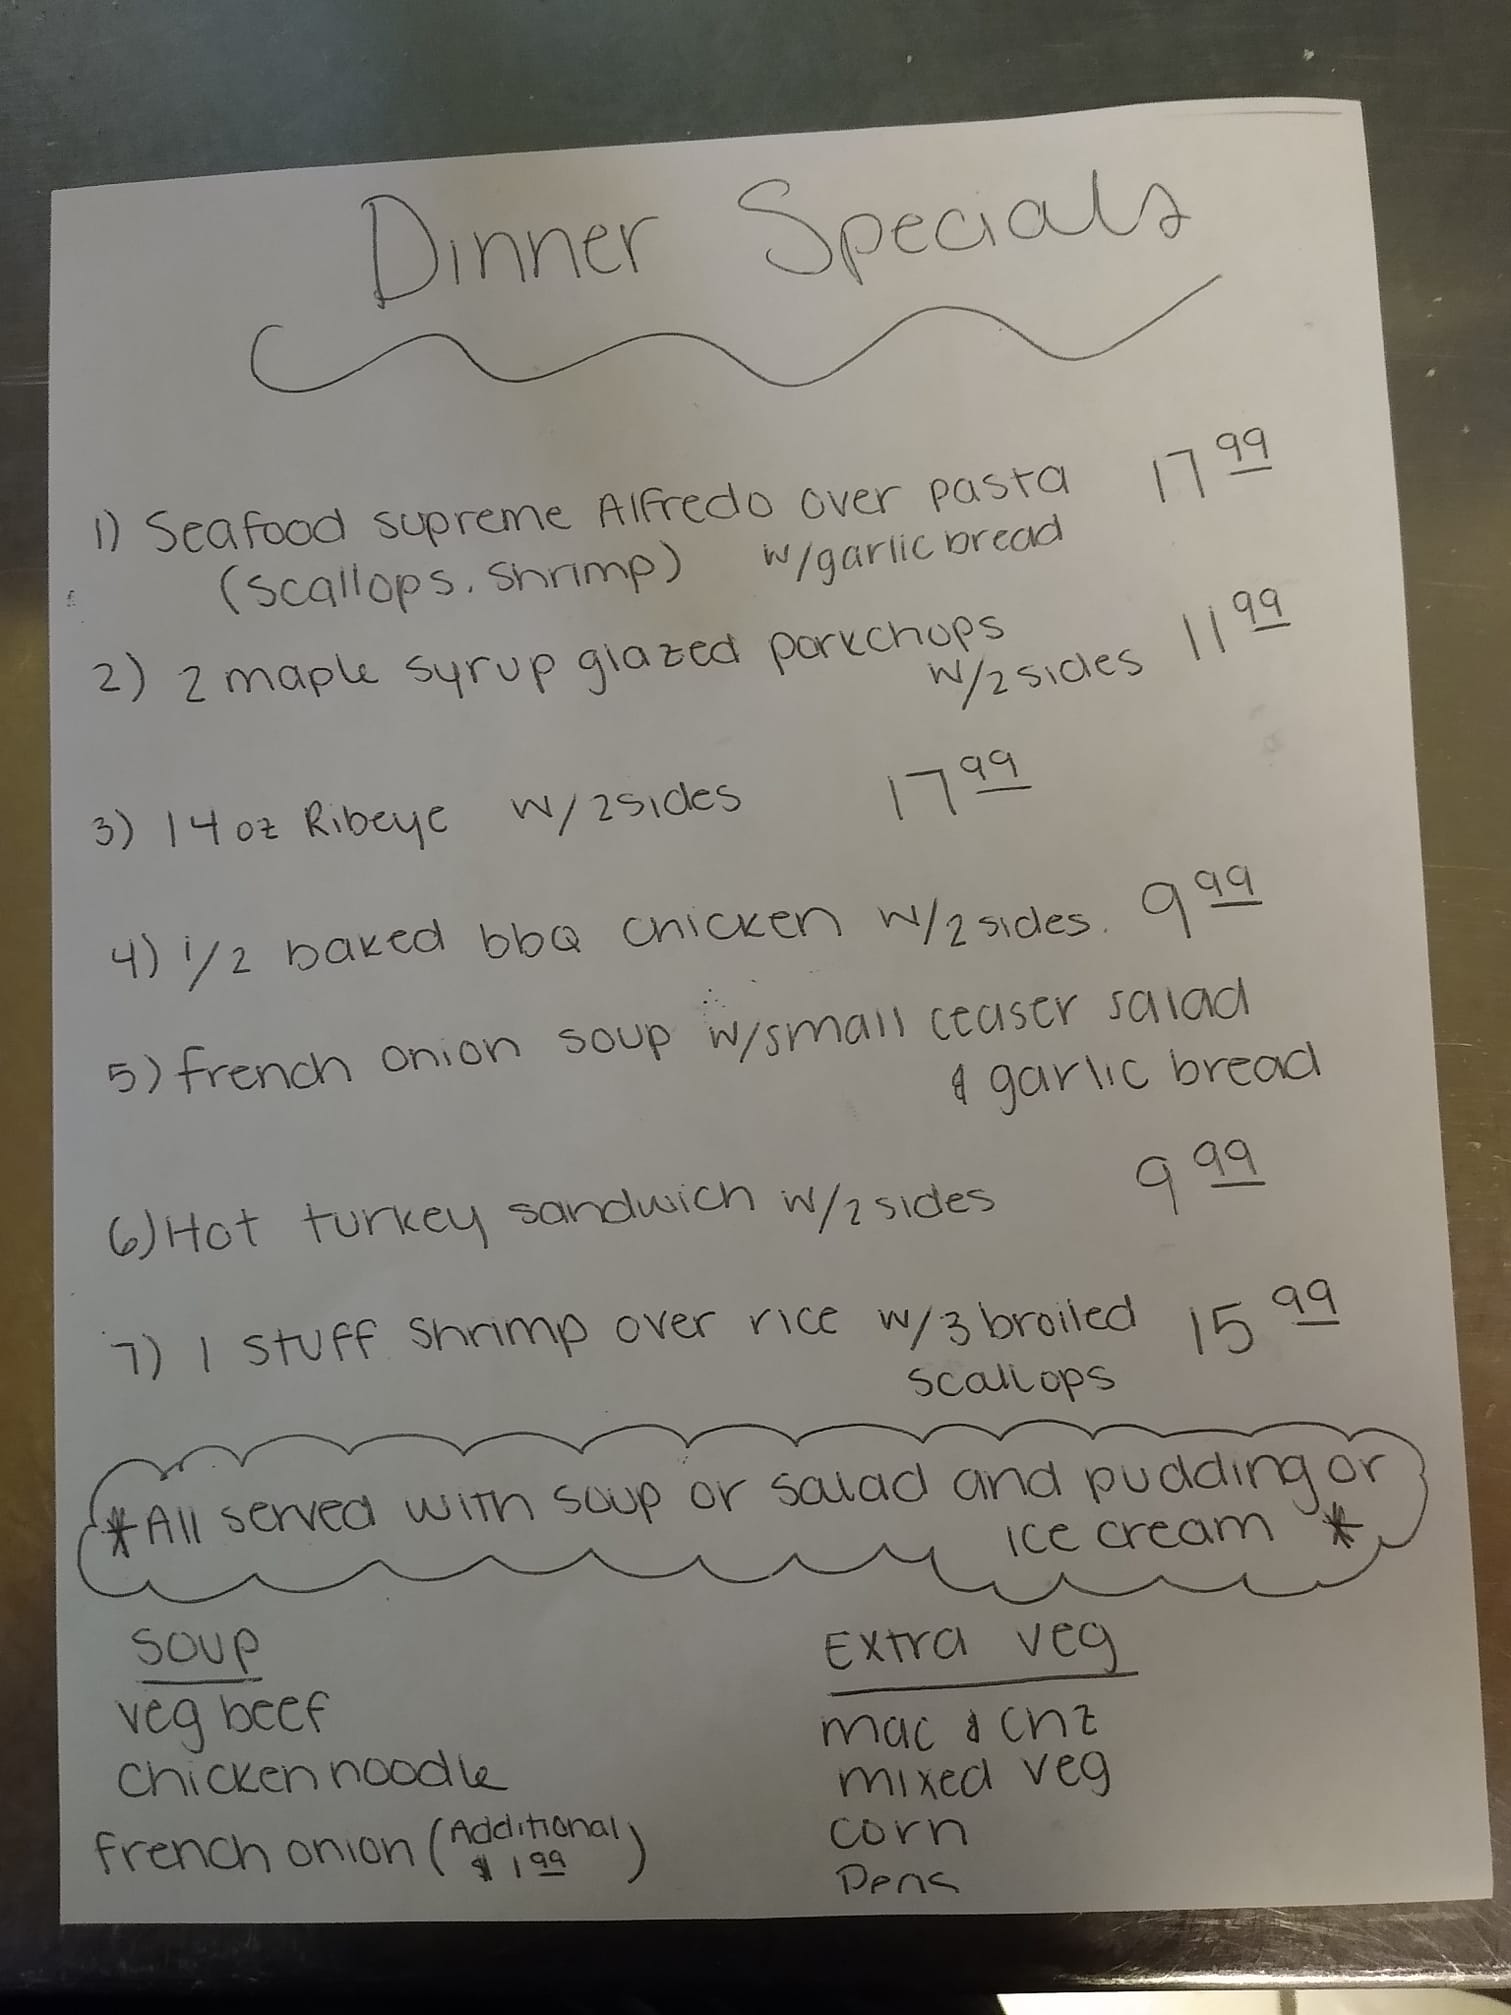 Dinner Specials
1) Seafood supreme Alfredo over pasta 17 99
(scallops, shrimp) w/garlic bread
2) 2 maple syrup glazed porkchops
w/2 sides 11 99
3) 14 oz Ribeye w/2 sides 17 99
4) 1/2 baked bbq chicken w/2 sides. 9 99
5) french onion soup w/small ceaser salad
& garlic bread
9 99
6) Hot turkey sandwich w/2 sides
7) 1 stuff shrimp over rice w/3 broiled 15 99
scallops
*All served with soup or salad and pudding or
ice cream *
soup
veg beef
chicken noodle
french onion (Additional
$1 99)
Extra veg
mac & chz
mixed veg
corn
Peas